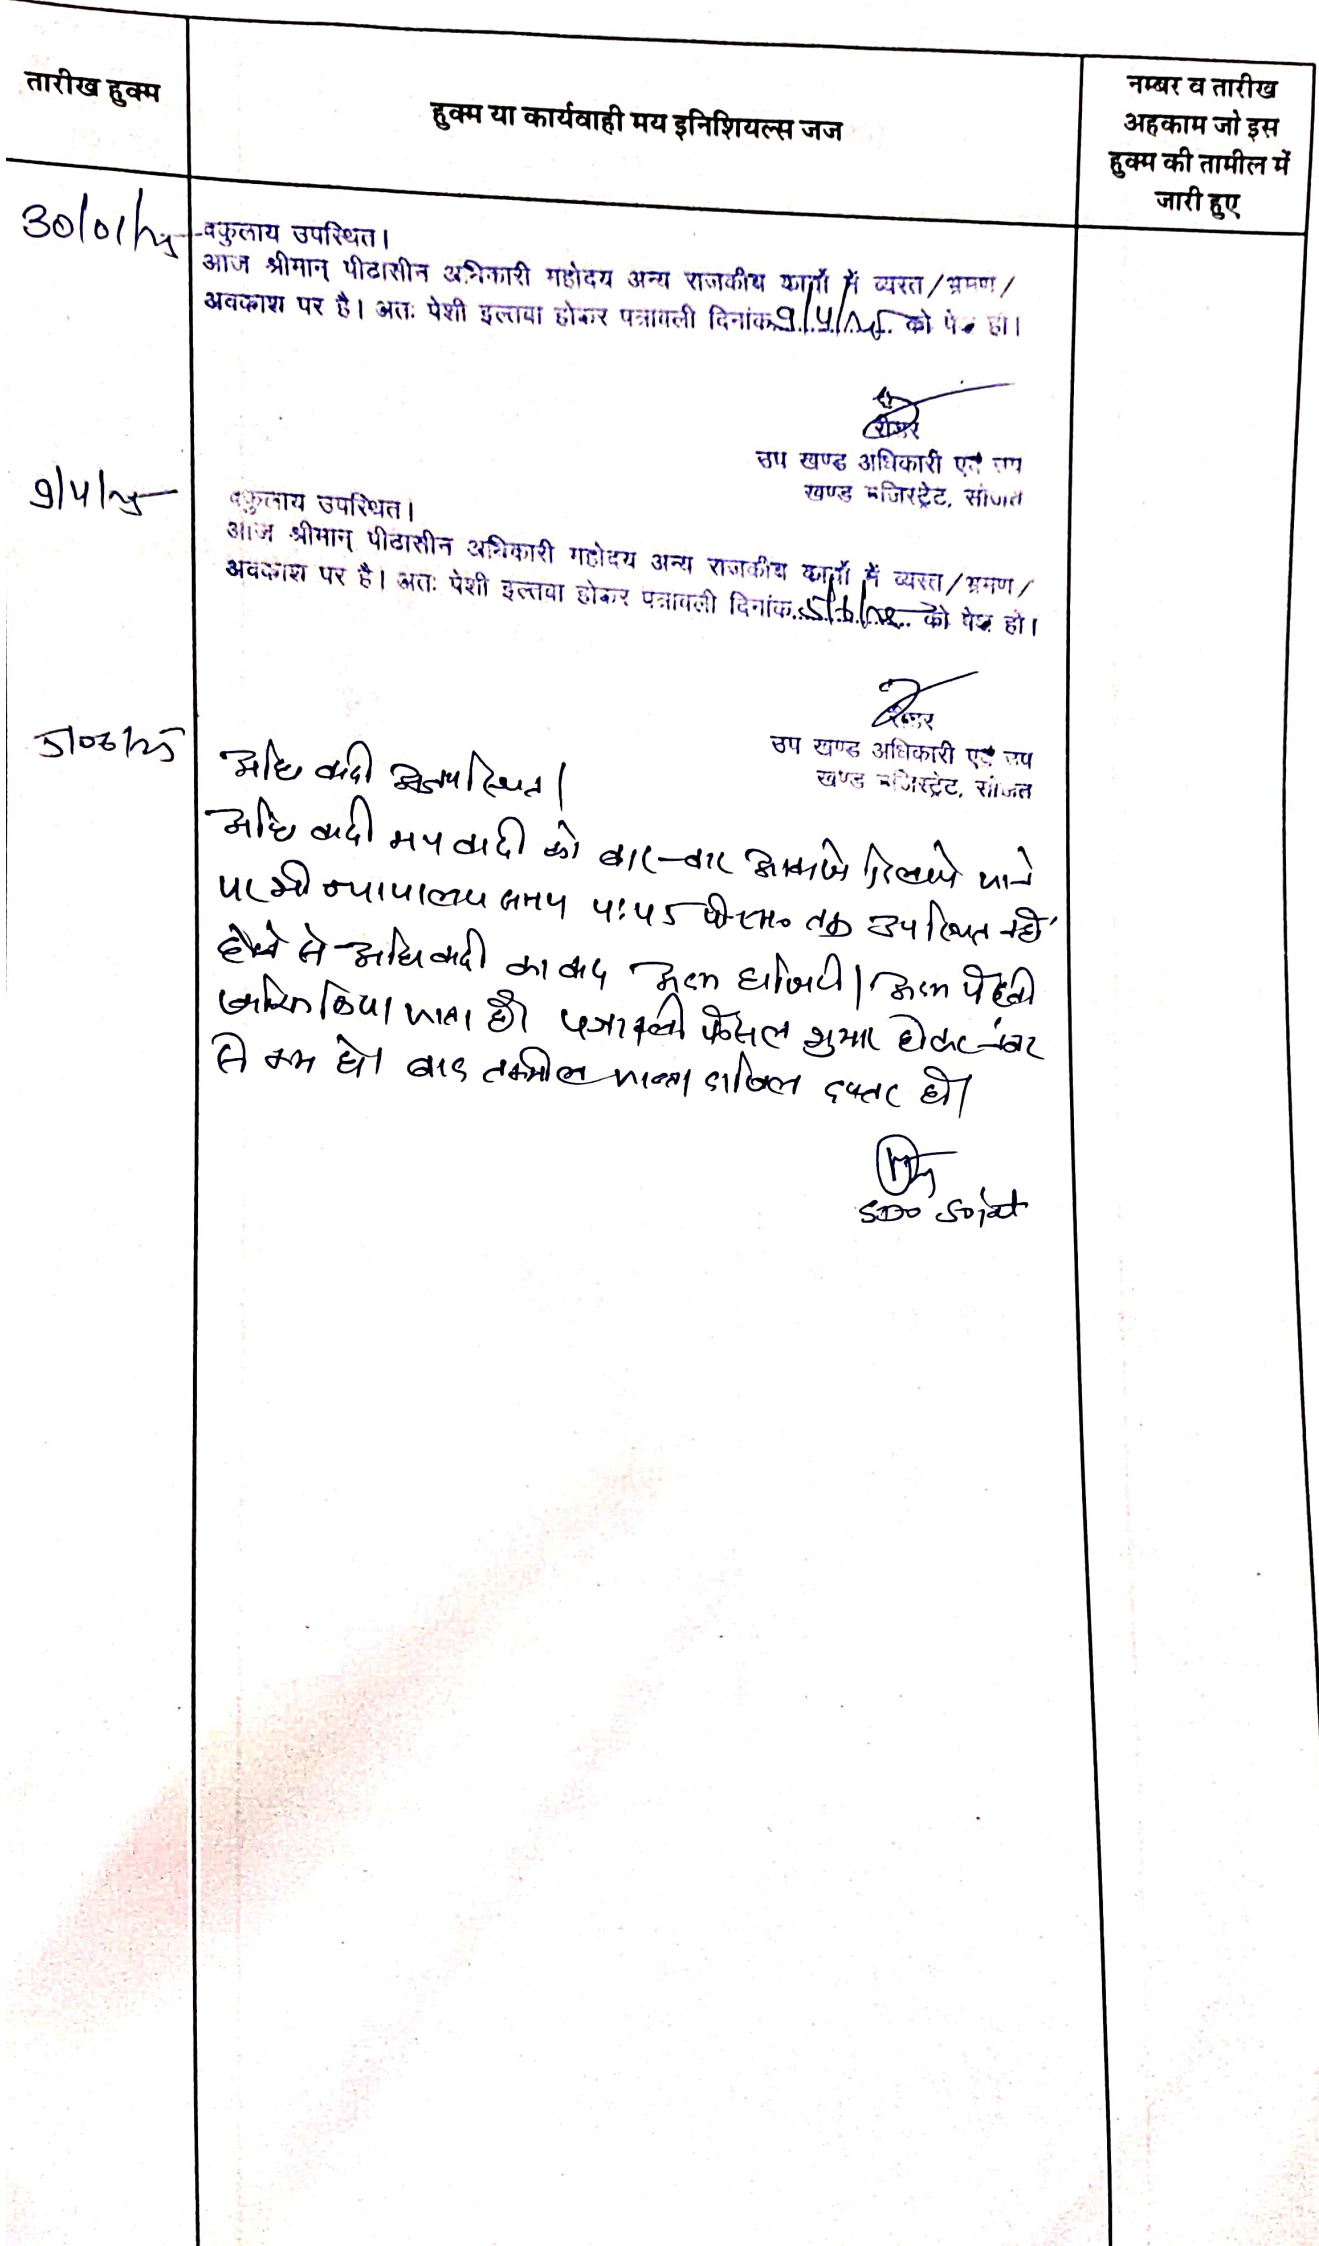 तारीख हुक्म
हुक्म या कार्यवाही मय इनिशियल्स जज
नम्बर व तारीख
अहकाम जो इस
हुक्म की तामील में
जारी हुए
30/01/25
वकुलाय उपस्थित।
आज श्रीमान् पीठासीन अधिकारी महोदय अन्य राजकीय कार्यों में व्यस्त/भ्रमण/
अवकाश पर है। अतः पेशी इल्तवा होकर पत्रावली दिनांक 9/4/25 को पेश हो।
रीडर
उप खण्ड अधिकारी एवं उप
खण्ड मजिस्ट्रेट, सोजत
9/4/25
वकुलाय उपस्थित।
आज श्रीमान् पीठासीन अधिकारी महोदय अन्य राजकीय कार्यों में व्यस्त/भ्रमण/
अवकाश पर है। अतः पेशी इल्तवा होकर पत्रावली दिनांक 5/6/25 को पेश हो।
रीडर
उप खण्ड अधिकारी एवं उप
खण्ड मजिस्ट्रेट, सोजत
5/06/25
अधि वादी अनुपस्थित।
अधि वादी मय वादी को बार-बार आवाजे दिलाये जाने
पर भी न्यायालय समय 4:45 पी.एम. तक उपस्थित नहीं
होने से अधि वादी का वाद अदम हाजिरी/अदम पैरवी
खारिज किया जाता है। पत्रावली फैसल शुमार होकर नंबर
से कम हो। बाद तकमील जाब्ता दाखिल दफ्तर हो।
SDO Sojat